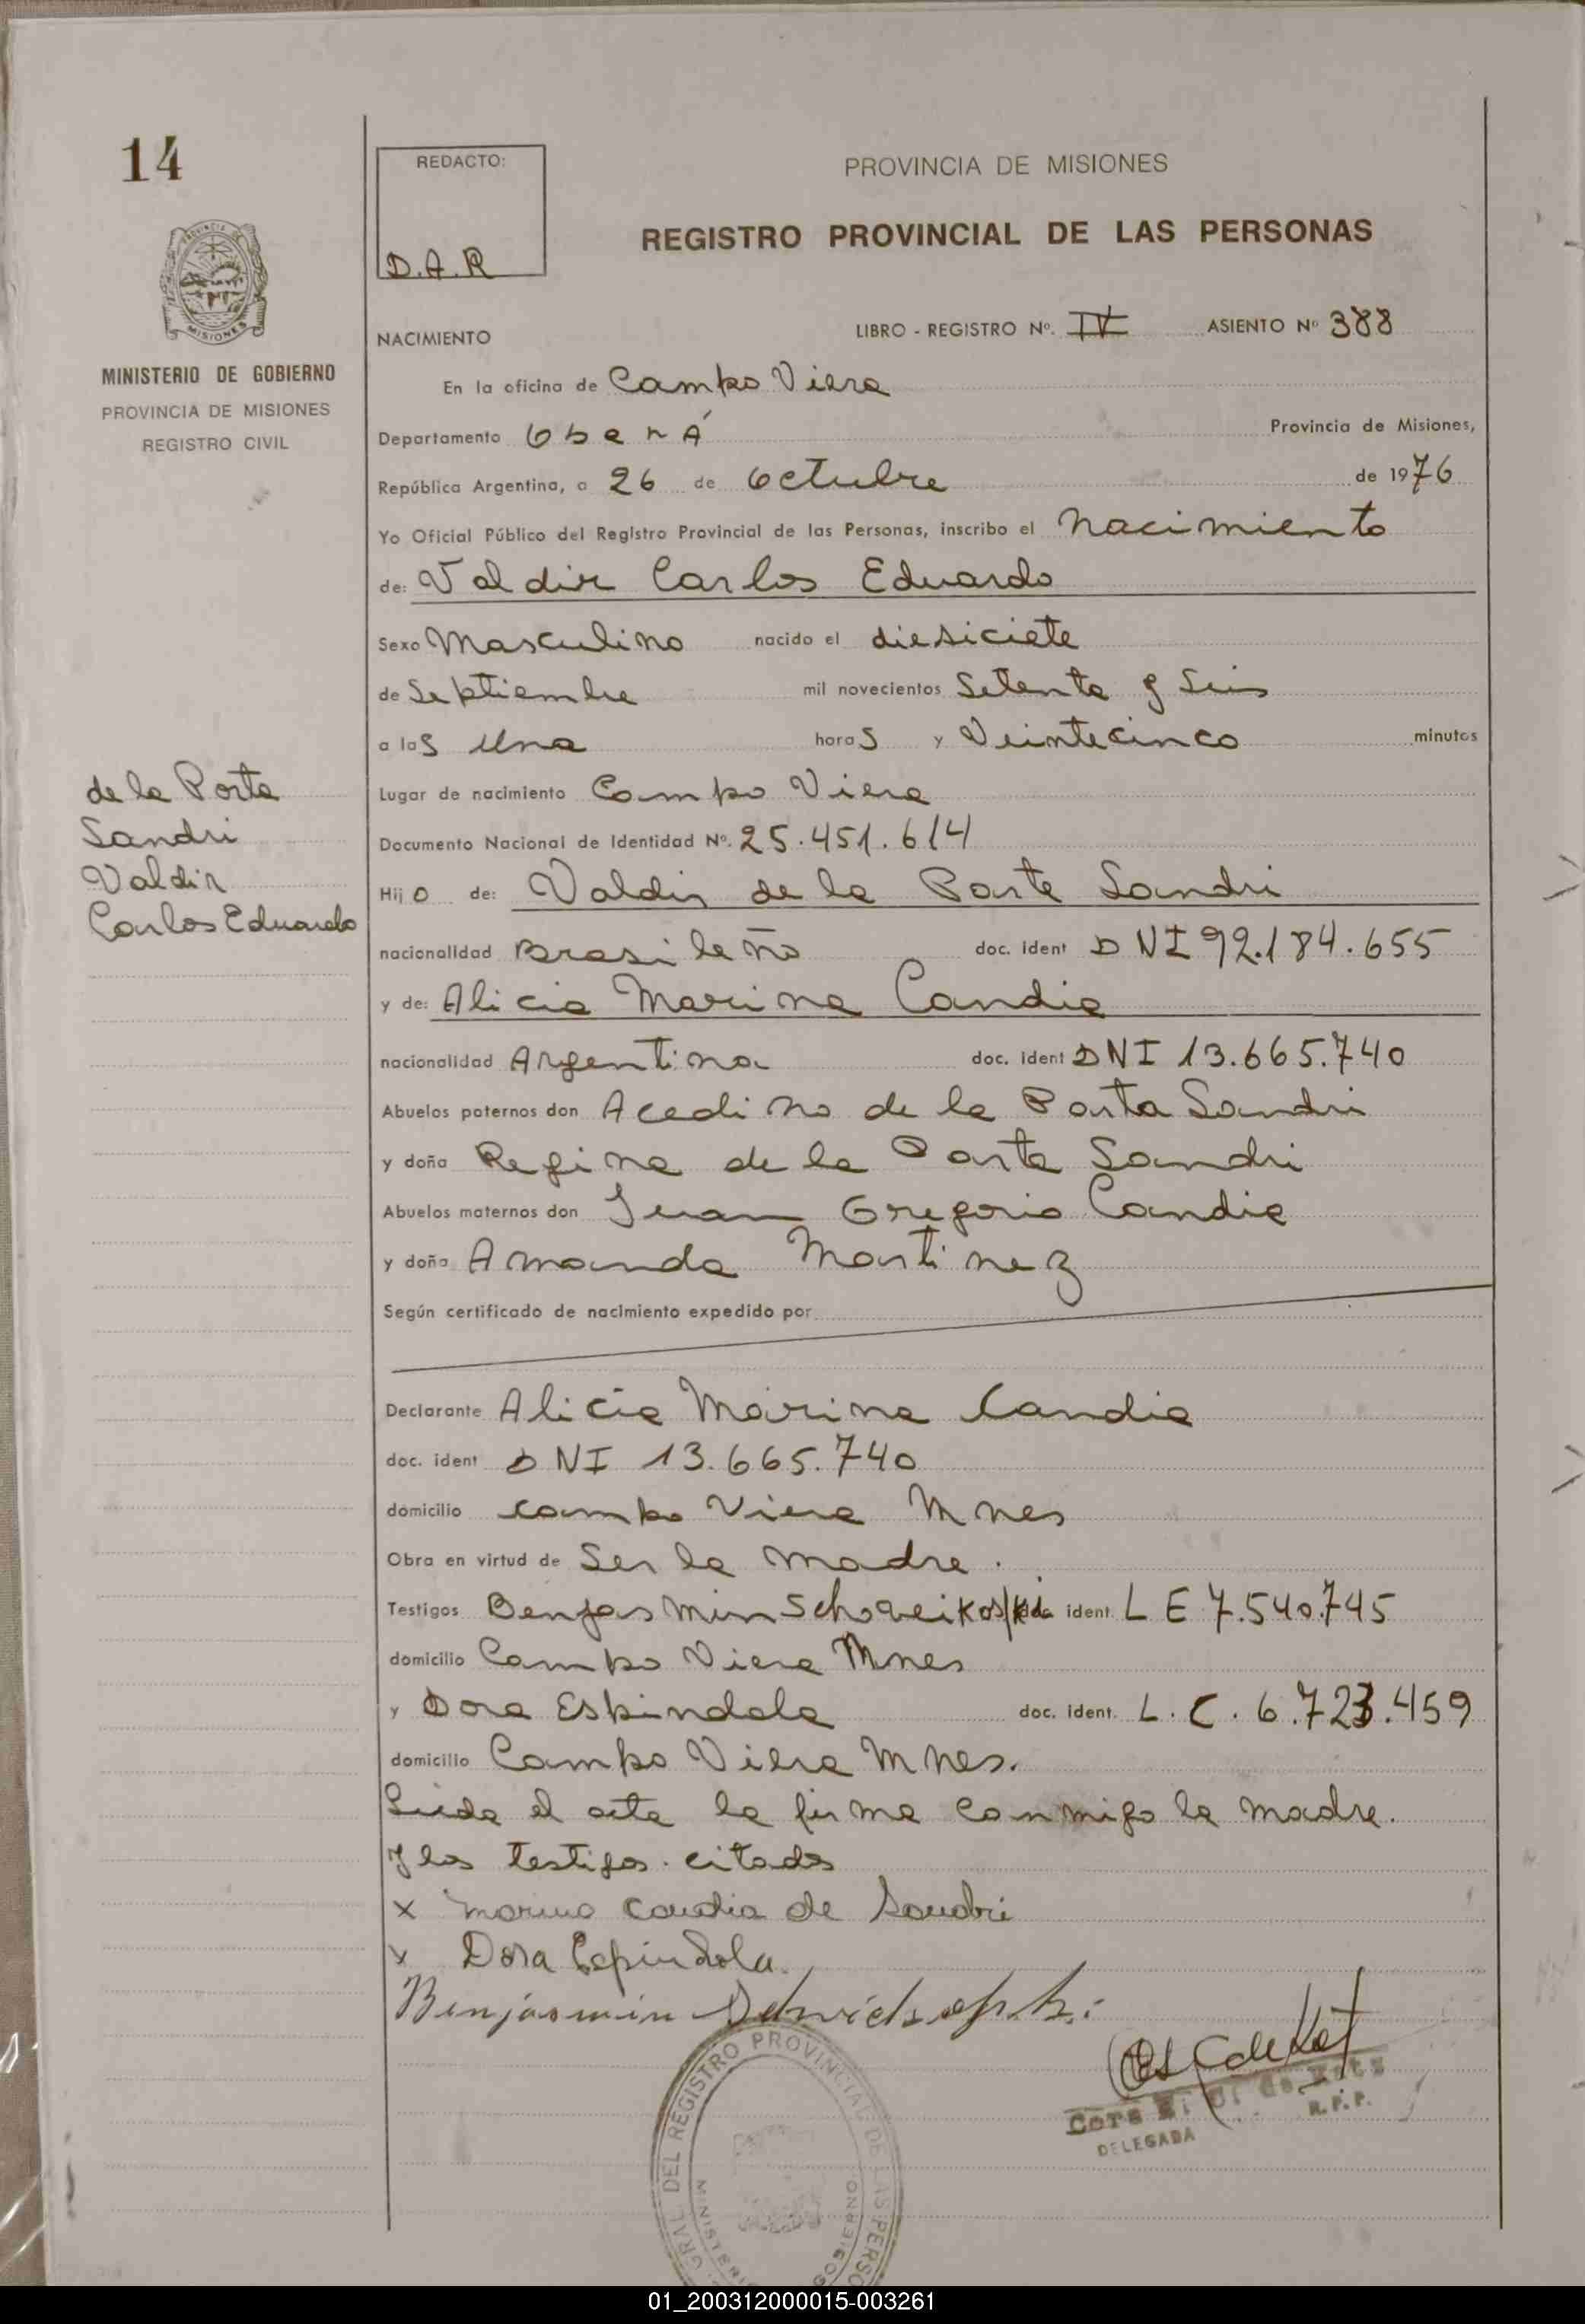 14
REDACTO:
D.A.R
PROVINCIA DE MISIONES
REGISTRO PROVINCIAL DE LAS PERSONAS
MISIONES
MINISTERIO DE GOBIERNO
PROVINCIA DE MISIONES
REGISTRO CIVIL
NACIMIENTO
LIBRO - REGISTRO Nº. IV ASIENTO Nº 388
En la oficina de Campo Viera
Departamento Oberá Provincia de Misiones,
República Argentina, a 26 de Octubre de 1976
Yo Oficial Público del Registro Provincial de las Personas, inscribo el Nacimiento
de: Valdir Carlos Eduardo
Sexo Masculino nacido el diesiciete
de Septiembre mil novecientos Setenta y Seis
a las una horas y Veintecinco minutos
de la Porta
Sandri
Valdir
Carlos Eduardo
Lugar de nacimiento Campo Viera
Documento Nacional de Identidad Nº. 25.451.614
Hijo de: Valdir de la Porta Sandri
nacionalidad Brasileño doc. ident DNI 92.184.655
y de: Alicia Marina Candia
nacionalidad Argentina doc. ident DNI 13.665.740
Abuelos paternos don Acedino de la Porta Sandri
y doña Regina de la Porta Sandri
Abuelos maternos don Juan Gregorio Candia
y doña Amanda Martinez
Según certificado de nacimiento expedido por
Declarante Alicia Marina Candia
doc. ident DNI 13.665.740
domicilio Campo Viera Mnes
Obra en virtud de Ser la madre.
Testigos ident. LE 7.540.745
domicilio Campo Viera Mnes
y Dora Espindola doc. ident. L.C. 6.723.459
domicilio Campo Viera Mnes.
Leida el acta la firma conmigo la madre.
y los testigos citados
x Marina Candia de Sandri
x Dora Espindola.
Benjasmin
DELEGADA
R.P.P.
GRAL. DEL REGISTRO PROVINCIAL DE LAS PERSO
GOBIERNO
01_200312000015-003261